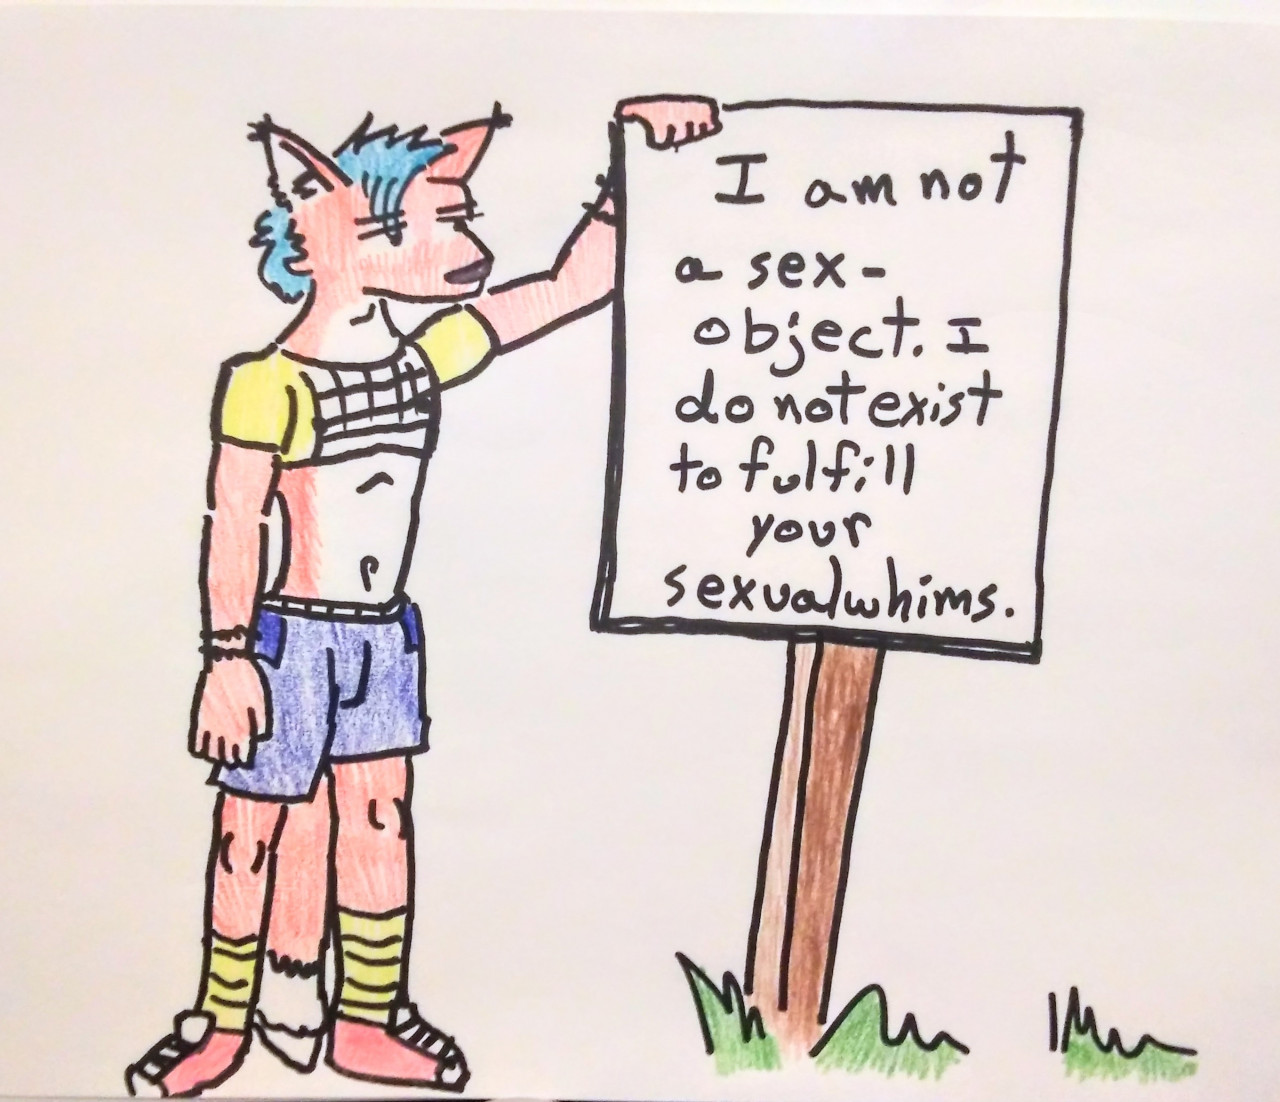 I am not
a sex-
object. I
do not exist
to fulfill
your
sexual whims.